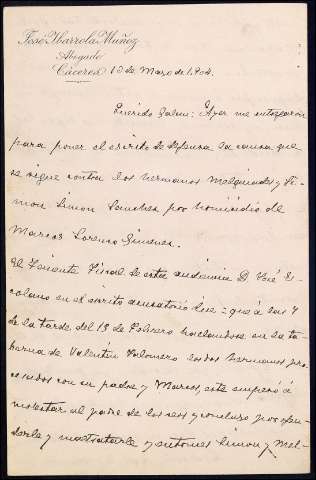 José Ybarrola Muñoz
Abogado
Cáceres 10 de Marzo de 1904.
Querido Galan: Ayer me entregaron
para poner el escrito de defensa la causa que
se sigue contra los hermanos Melquiades y Si-
mon Simon Sanchez por homicidio de
Marcos Lorenzo Gimenez.
El Teniente Fiscal de esta audiencia D. José Es-
colano en el escrito acusatorio dice = que á las 7
de la tarde del 13 de Febrero hallandose en la ta-
berna de Valentin Palomero los dos hermanos pro-
cesados con su padre y Marcos, este empezó á
molestar al padre de los reos y concluyó por ofen-
derle y maltratarle y entonces Simon y Mel-